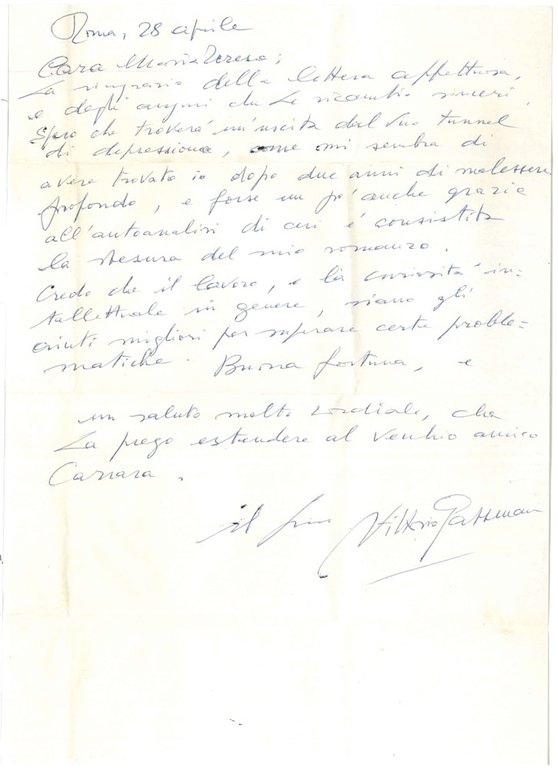 Roma, 28 aprile
Cara Maria Teresa,
La ringrazio della lettera affettuosa,
e degli auguri che Le ricambio sinceri.
Spero che troverà un'uscita dal Suo tunnel
di depressione, come mi sembra di
avere trovato io dopo due anni di malessere
profondo, e forse un po' anche grazie
all'autoanalisi di cui è consistita
la stesura del mio romanzo.
Credo che il lavoro, e la curiosità in=
tellettuale in genere, siano gli
aiuti migliori per superare certe proble=
matiche. Buona fortuna, e
un saluto molto cordiale, che
La prego estendere al vecchio amico
Carrara.
il Suo Vittorio Gassman